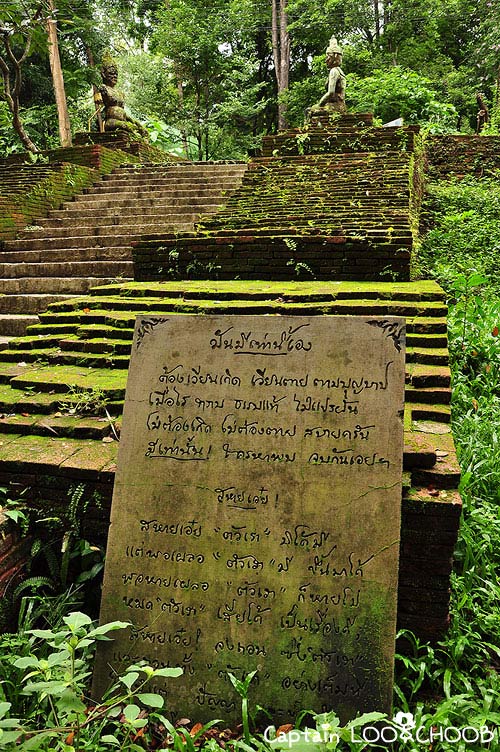 มันมีเท่านี้เอง
ต้องเวียนเกิด เวียนตาย ตามบุญบาป
เมื่อไร ทราบ ธรรมแท้ ไม่แปรผัน
ไม่ต้องเกิด ไม่ต้องตาย สบายครัน
มีเท่านั้น! ใครหาพบ จบกันเอยฯ
สหายเอ๋ย!
สหายเอ๋ย "ตัวเรา" มิได้มี
แต่พอเผลอ "ตัวเรา" มี ขึ้นมาได้
พอหายเผลอ "ตัวเรา" ก็หายไป
หมด "ตัวเรา" เสียได้ เป็นเรื่องดี
สหายเอ๋ย! จงถอน ซึ่ง "ตัวเรา"
และถอนทั้ง "ตัวเขา" อย่างเต็มที่
Captain LOOKCHOOB